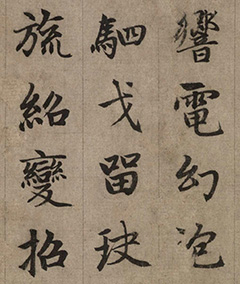 響電幻泡
駟戈留玦
旒紹變招